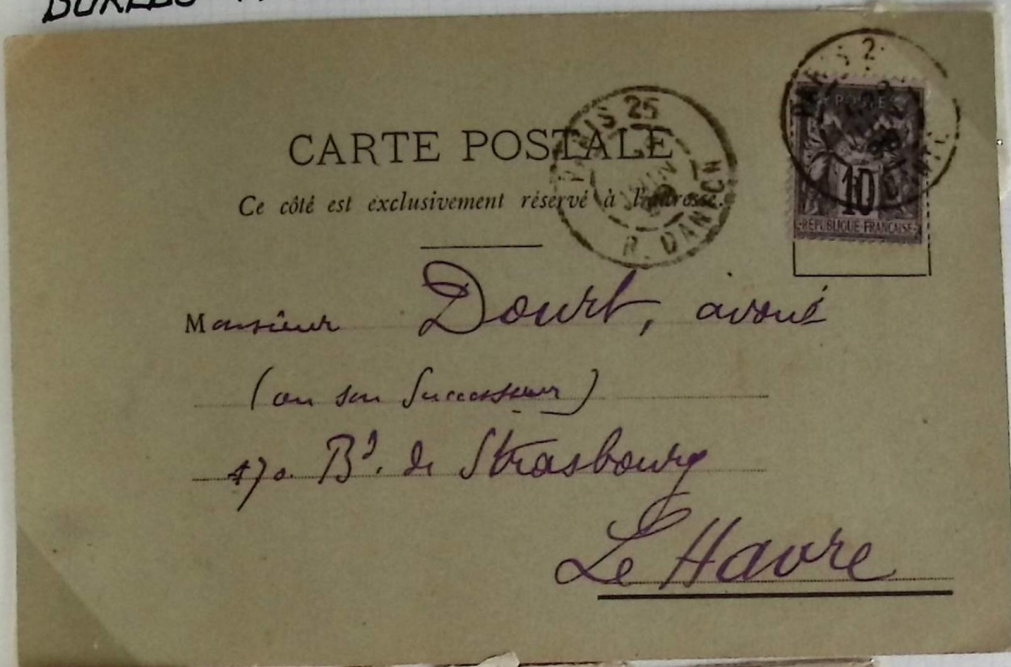 CARTE POSTALE
Ce côté est exclusivement réservé à l'adresse.
PARIS 25
JUIN
R. DANTON
POSTES
10
RÉPUBLIQUE FRANÇAISE
Monsieur Dourt, avoué
(ou son Successeur)
170 Bd. de Strasbourg
Le Havre